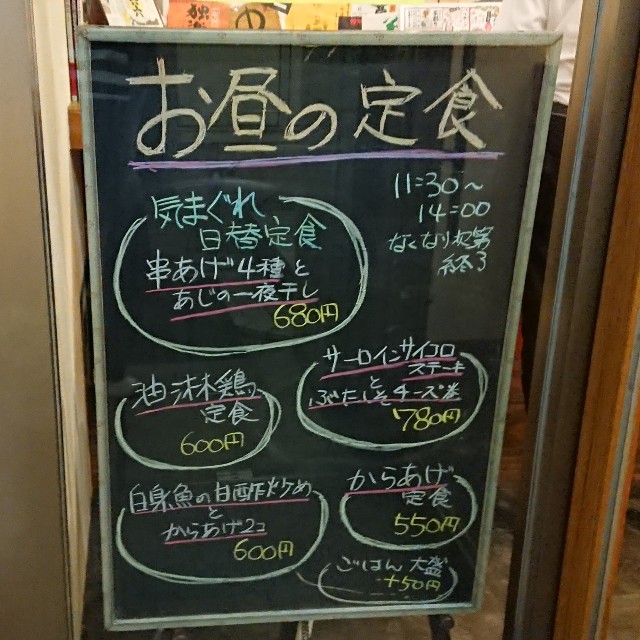 お昼の定食
11:30〜
14:00
なくなり次第
終了
気まぐれ
日替定食
串あげ4種と
あじの一夜干し
680円
サーロインサイコロ
ステーキ
と
ぶたしそチーズ巻
780円
油淋鶏
定食
600円
からあげ
定食
550円
白身魚の甘酢炒め
と
からあげ2コ
600円
ごはん大盛
+50円